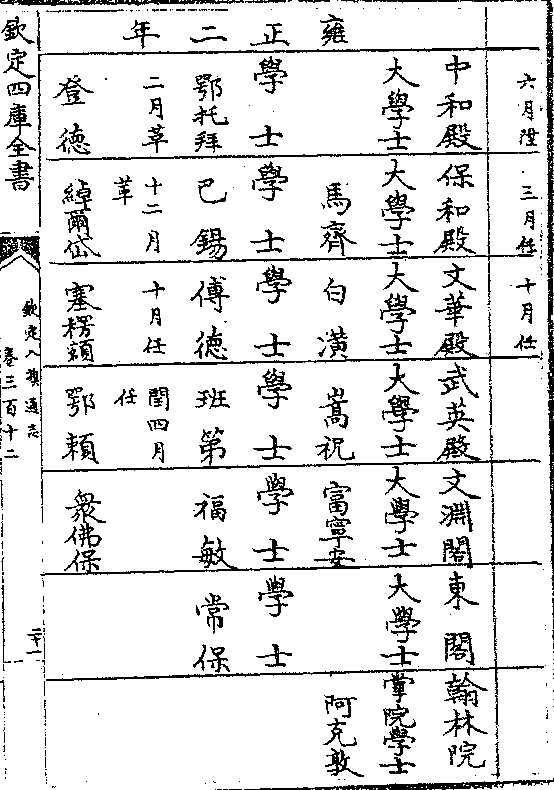 六月陞 三月任 十月任
雍正二年
中和殿 保和殿 文華殿 武英殿 文淵閣 東閣 翰林院
大學士 大學士 大學士 大學士 大學士 大學士 掌院學士
馬齊 白潢 嵩祝 富寧安 阿克敦
學士 學士 學士 學士 學士 學士
鄂托拜 巴錫 傅德 班第 福敏 常保
二月革 十二月 十月任 閏四月
革 任
登德 綽爾岱 塞楞額 鄂賴 衆佛保
欽定四庫全書
欽定八旗通志
卷三百十二